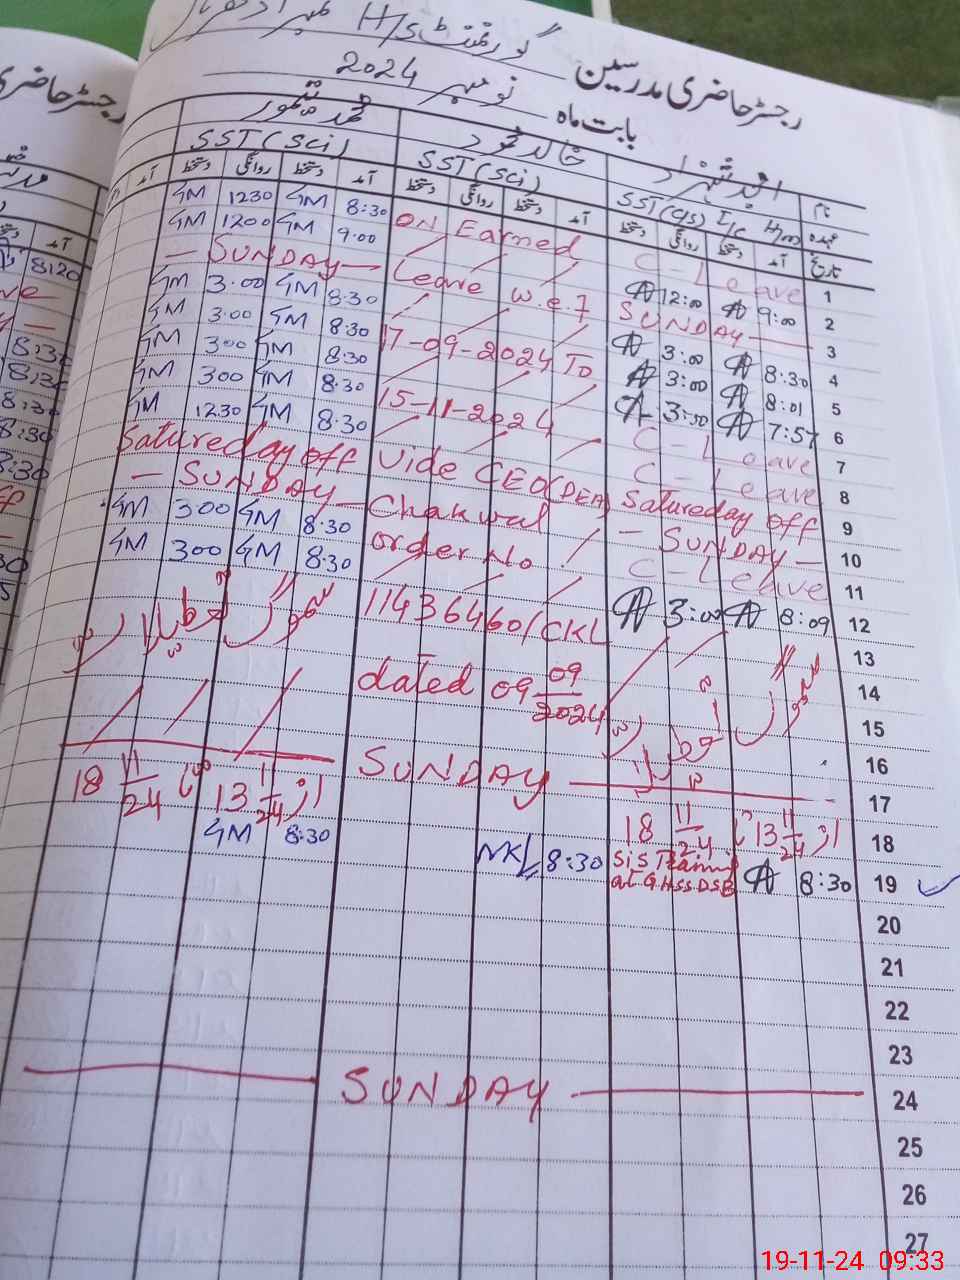 گورنمنٹ H/S نمبر
رجسٹر حاضری مدرسین
بابت ماہ نومبر 2024
نام امجد شہزاد خالد محمود محمد
عہدہ SST(CS) I/C H/m SST(Sci) SST(Sci)
تاریخ آمد دستخط روانگی دستخط آمد دستخط روانگی دستخط آمد دستخط روانگی دستخط
1 C-Leave ON Earned 8:30 GM 1230 GM
2 9:00 12:00 9.00 GM 1200 GM
3 SUNDAY Leave w.e.f - SUNDAY -
4 8:30 3:00 8.30 GM 3.00 GM
5 8:01 3:00 17-09-2024 To 8:30 GM 3.00 GM
6 7:57 3:00 8:30 GM 300 GM
7 C-Leave 15-11-2024 8.30 GM 300 GM
8 C-Leave 8.30 GM 1230 GM
9 Satureday off Vide CEO(DEA) Satureday off
10 - SUNDAY - Chakwal - SUNDAY -
11 C-Leave order No 8.30 GM 300 GM
12 8:09 3:00 8.30 GM 300 GM
13 11436460/CKL
14 سموگ تعطیلات dated 09 09/2024 سموگ تعطیلات
15
16
17 SUNDAY
18 از 13 11/24 تا 18 11/24 از 13 1/24 تا 18 11/24
19 8:30 SIS Training at GHSS DSB 8:30 NKL 8:30 GM
20
21
22
23
24 SUNDAY
25
26
27
19-11-24 09:33